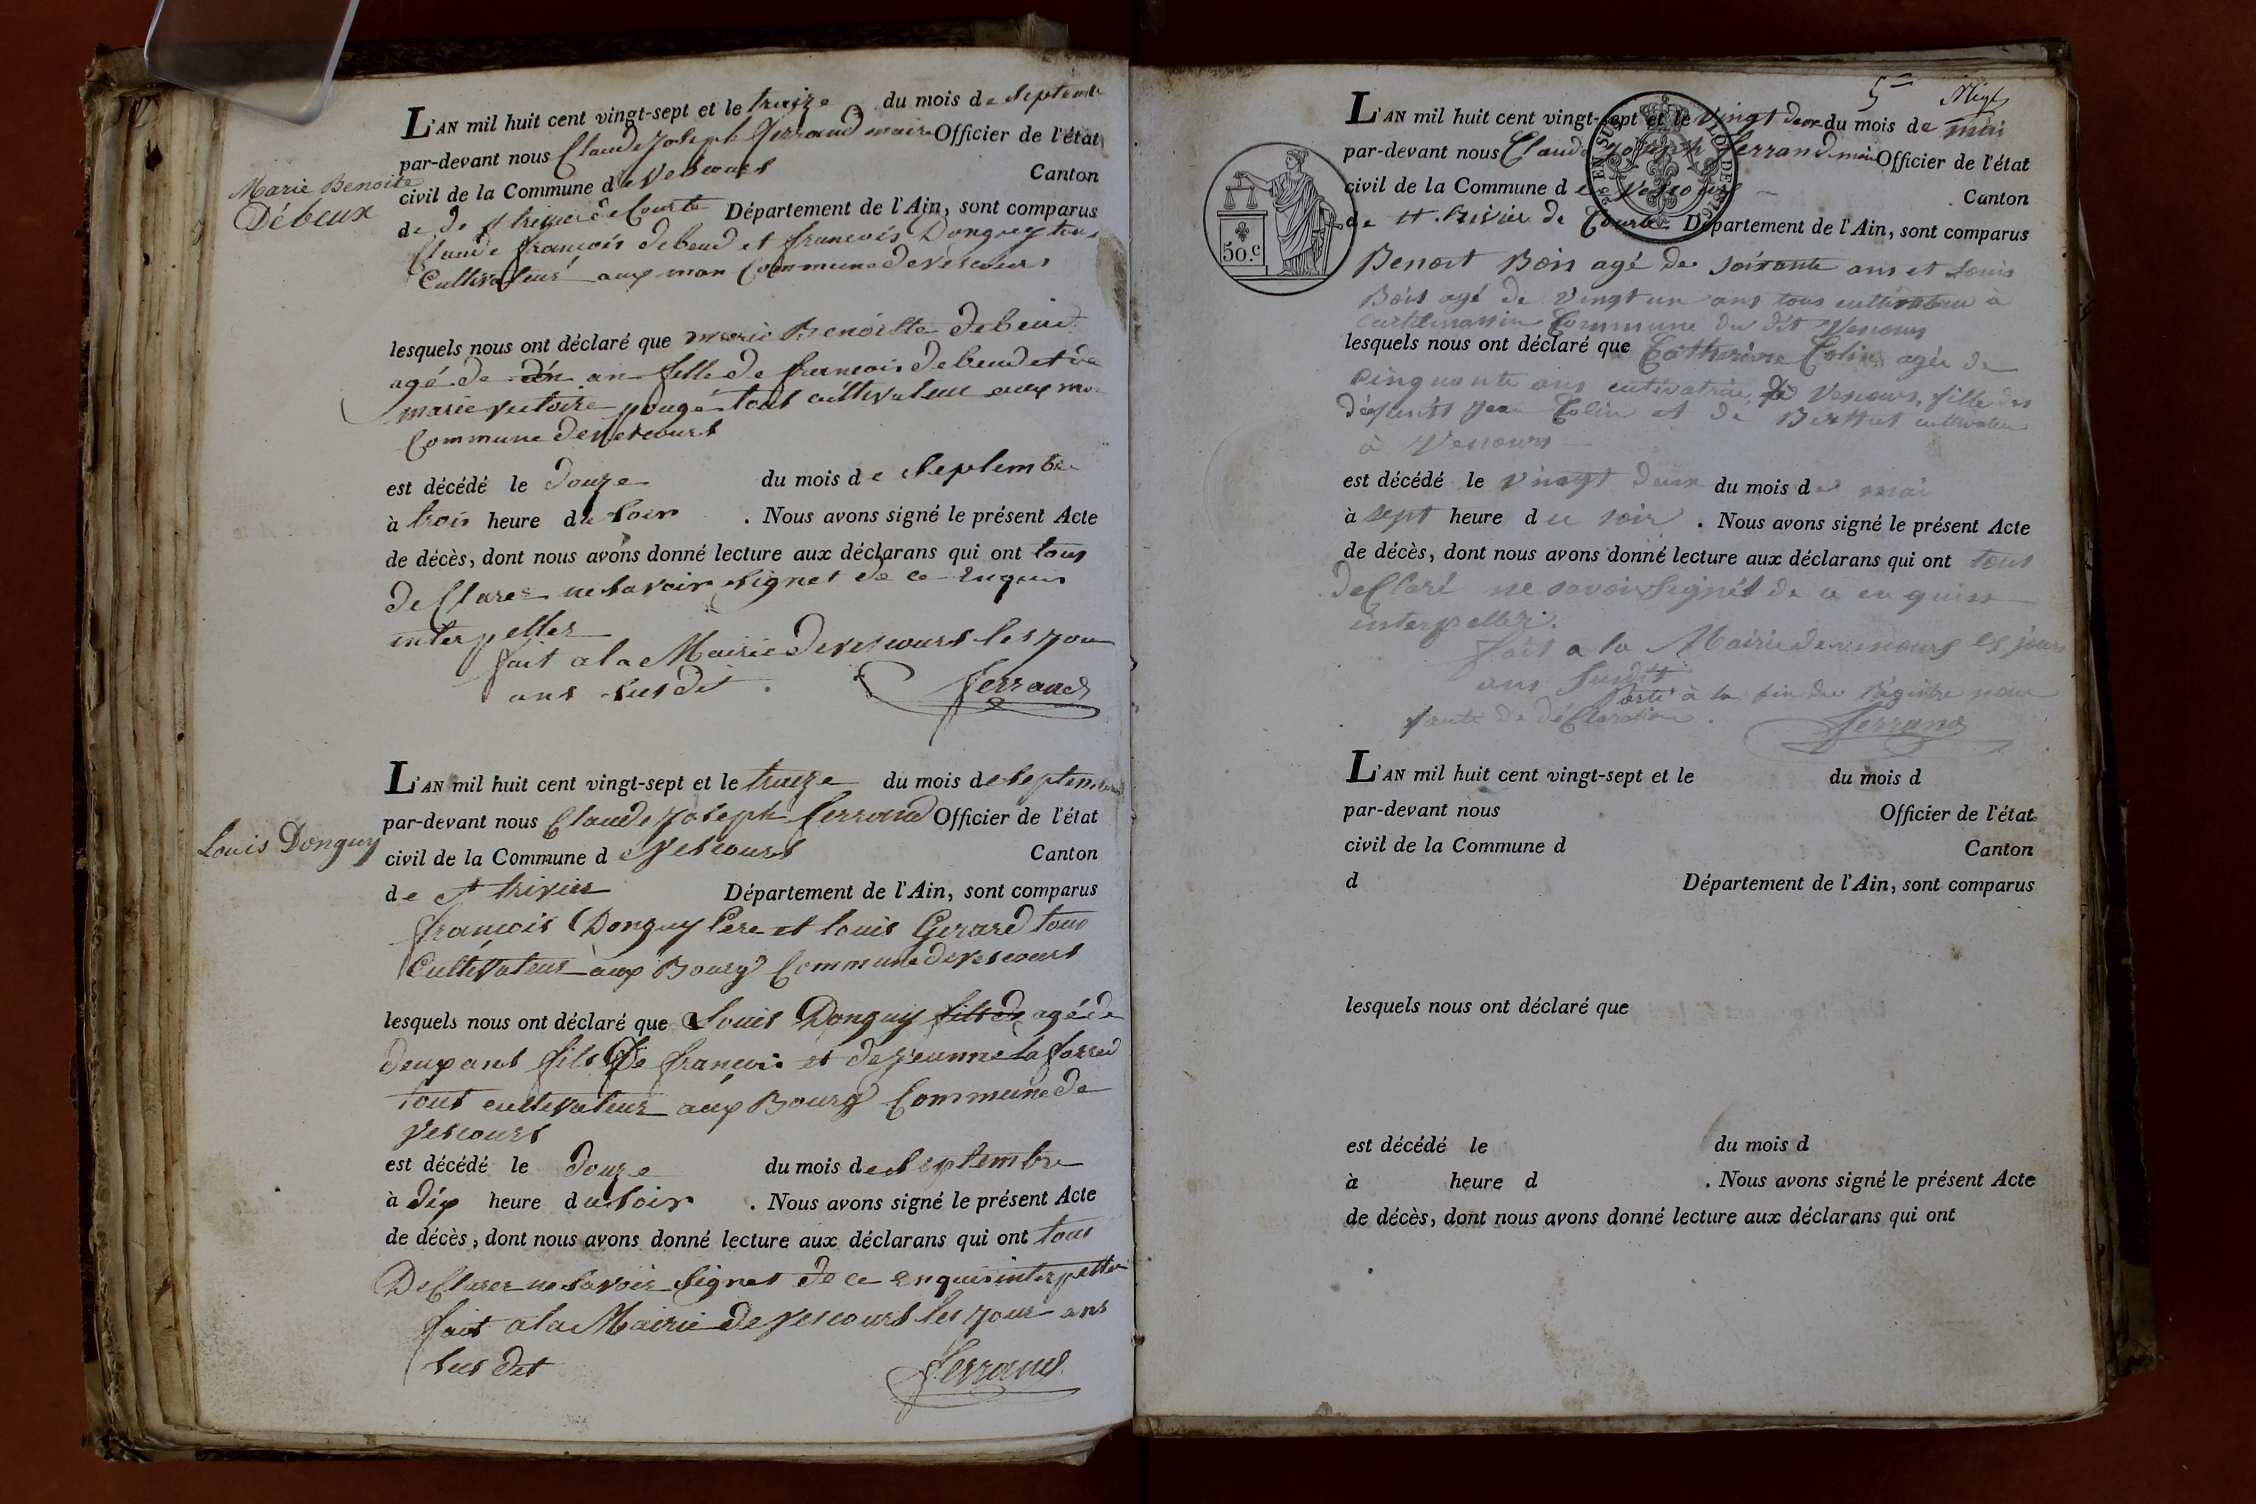 L'AN mil huit cent vingt-sept et le treize du mois de septembr
par-devant nous Claude Joseph Ferrand maire Officier de l'état
civil de la Commune de Vescours Canton
de de st trivier de Courte Département de l'Ain, sont comparus
Claude françois debeud et françois Donguy tous
Cultivateur aux Commune de vescours
Marie Benoite
Débeux
lesquels nous ont déclaré que marie Benoiste debeud
agé de un an fille de francois debeud et de
marie victoire tout cultivateur aux
Commune de vescours
est décédé le douze du mois de septembre
à trois heure du soir . Nous avons signé le présent Acte
de décès, dont nous avons donné lecture aux déclarans qui ont tous
deClarer ne savoir signet de ce enquis
interpeller
fait a la Mairie de vescours les jour
ans sus dit .
Ferrand
L'AN mil huit cent vingt-sept et le treize du mois de septembre
par-devant nous Claude Joseph ferrand Officier de l'état
civil de la Commune de vescours Canton
de st trivier Département de l'Ain, sont comparus
françois Donguy Pere et louis Gerard tous
Cultivateur aux Bourg Commune de vescours
Louis Donguy
lesquels nous ont déclaré que Louis Donguy fils de agé de
deux ans fils De françois et de jeanne la
tout cultivateur aux Bourg Commune de
vescours
est décédé le douze du mois de septembre
à dix heure du soir . Nous avons signé le présent Acte
de décès, dont nous avons donné lecture aux déclarans qui ont tous
DeClarer ne savoir signet de ce enquis interpeller
fait a la Mairie de vescours les jour ans
sus dit
Ferrand
5
L'AN mil huit cent vingt-sept et le vingt deux du mois de mai
par-devant nous Claude Joseph Ferrand maire Officier de l'état
civil de la Commune de Vescours Canton
de st. trivier de Courte Département de l'Ain, sont comparus
50.c
Benoit Bois agé de soixante ans et Louis
Bois agé de vingt un ans tous cultivateur à
Commune du dit Vescours
lesquels nous ont déclaré que Catherine Colin agée de
cinquante ans cultivatrice de Vescours, fille des
défunts jean Colin et de Berthet cultivateur
à Vescours
est décédé le vingt deux du mois de mai
à sept heure du soir . Nous avons signé le présent Acte
de décès, dont nous avons donné lecture aux déclarans qui ont tous
deClaré ne savoir signét de ce enquis
interpeller.
fait a la Mairie de vescours les jours
ans susdit
Porté à la fin du Régistre pour
faute de déClaration.
Ferrand
L'AN mil huit cent vingt-sept et le du mois d
par-devant nous Officier de l'état
civil de la Commune d Canton
d Département de l'Ain, sont comparus
lesquels nous ont déclaré que
est décédé le du mois d
à heure d . Nous avons signé le présent Acte
de décès, dont nous avons donné lecture aux déclarans qui ont